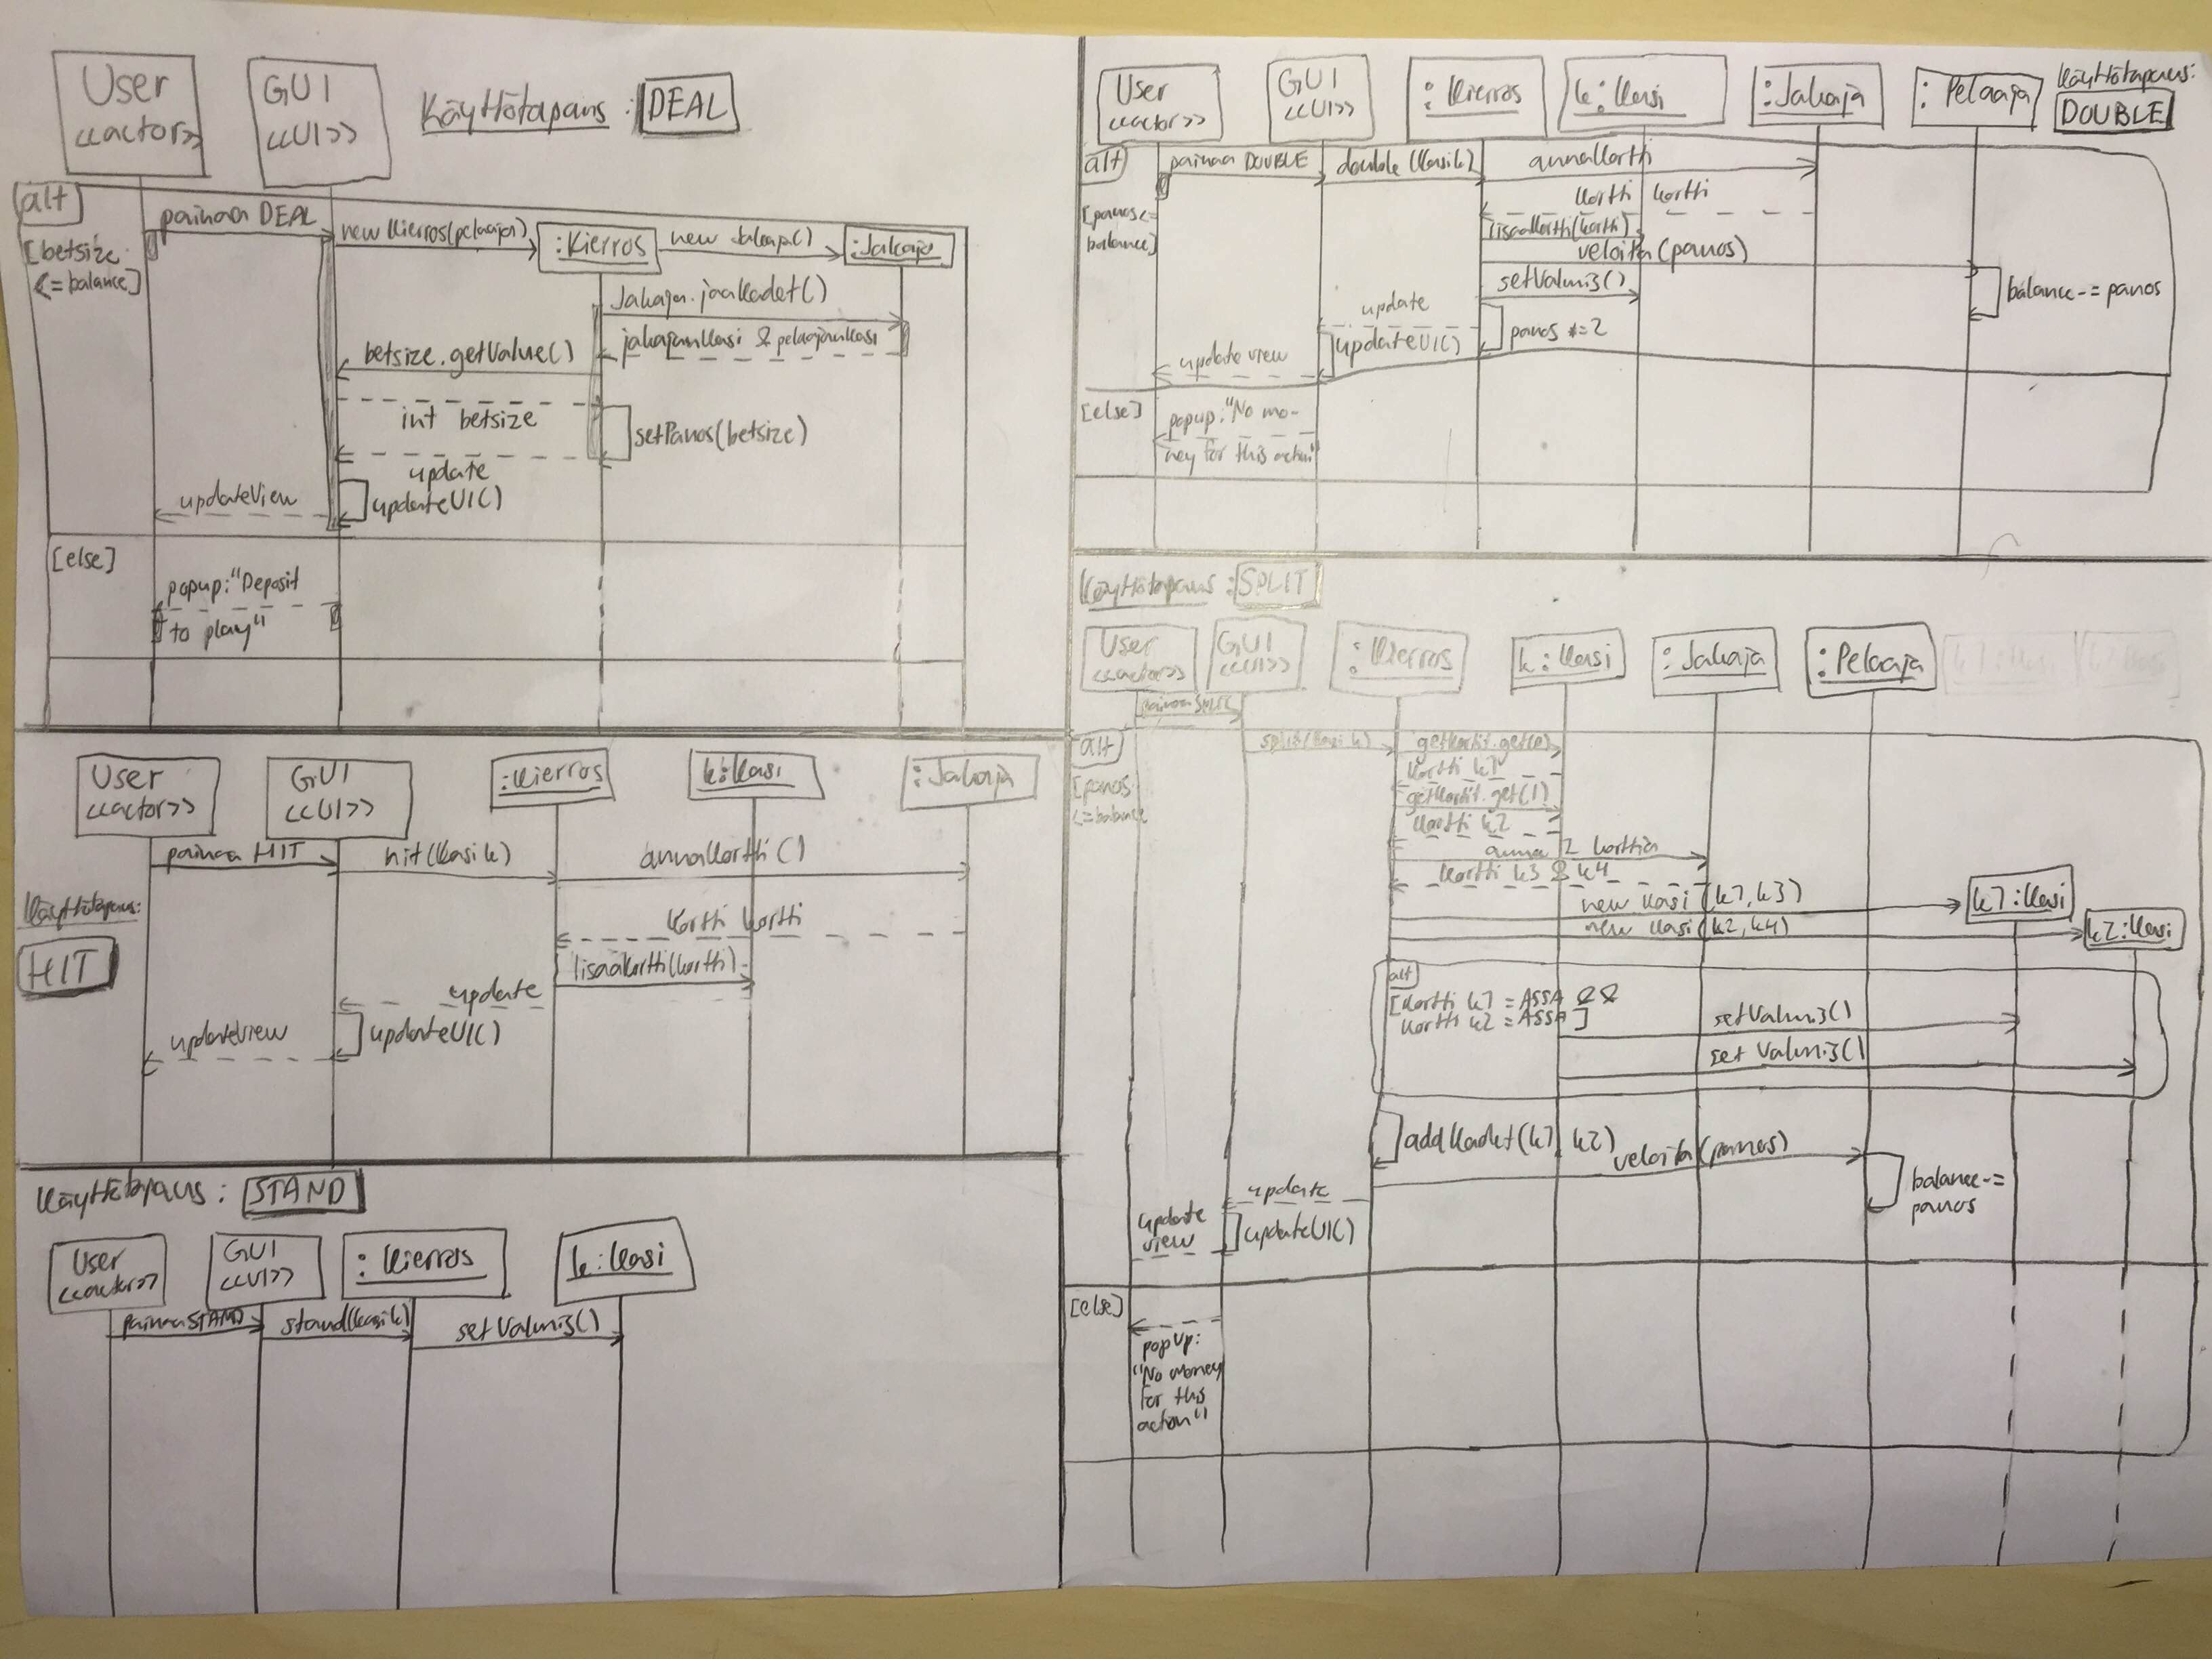 User
<<actor>>
GUI
<<UI>>
Käyttötapaus : DEAL
alt
[betsize
<=balance]
painaa DEAL
new Kierros(pelaaja)
:Kierros
new Jakaja()
:Jakaja
Jakaja.jaaKadet()
jakajanKasi & pelaajanKasi
betsize.getValue()
int betsize
setPanos(betsize)
update
updateUI()
updateView
[else]
popup:"Deposit
to play"
User
<<actor>>
GUI
<<UI>>
:Kierros
k:Kasi
:Jakaja
painaa HIT
hit(Kasi k)
annaKortti()
Käyttötapaus:
HIT
Kortti kortti
lisaaKortti(kortti)
update
updateUI()
updateView
Käyttötapaus : STAND
User
<<actor>>
GUI
<<UI>>
:Kierros
k:Kasi
painaa STAND
stand(Kasi k)
setValmis()
User
<<actor>>
GUI
<<UI>>
:Kierros
k:Kasi
:Jakaja
:Pelaaja
Käyttötapaus:
DOUBLE
alt
[panos<=
balance]
painaa DOUBLE
double(Kasi k)
annaKortti
Kortti kortti
lisaaKortti(kortti)
veloita(panos)
balance-= panos
setValmis()
update
panos *=2
updateUI()
update view
[else]
popup:"No mo-
ney for this action"
Käyttötapaus : SPLIT
User
<<actor>>
GUI
<<UI>>
:Kierros
k:Kasi
:Jakaja
:Pelaaja
painaa SPLIT
alt
[panos
<=balance
split(Kasi k)
getKortit.get(0)
Kortti k1
getKortit.get(1)
Kortti k2
anna 2 korttia
Kortti k3 & k4
new Kasi(k1,k3)
k1:Kasi
new Kasi(k2,k4)
k2:Kasi
alt
[Kortti k1 = ASSA &&
Kortti k2 = ASSA]
setValmis()
setValmis()
addKadet(k1, k2)
veloita(panos)
balance-=
panos
update
updateUI()
update
view
[else]
popUp:
"No money
for this
action"